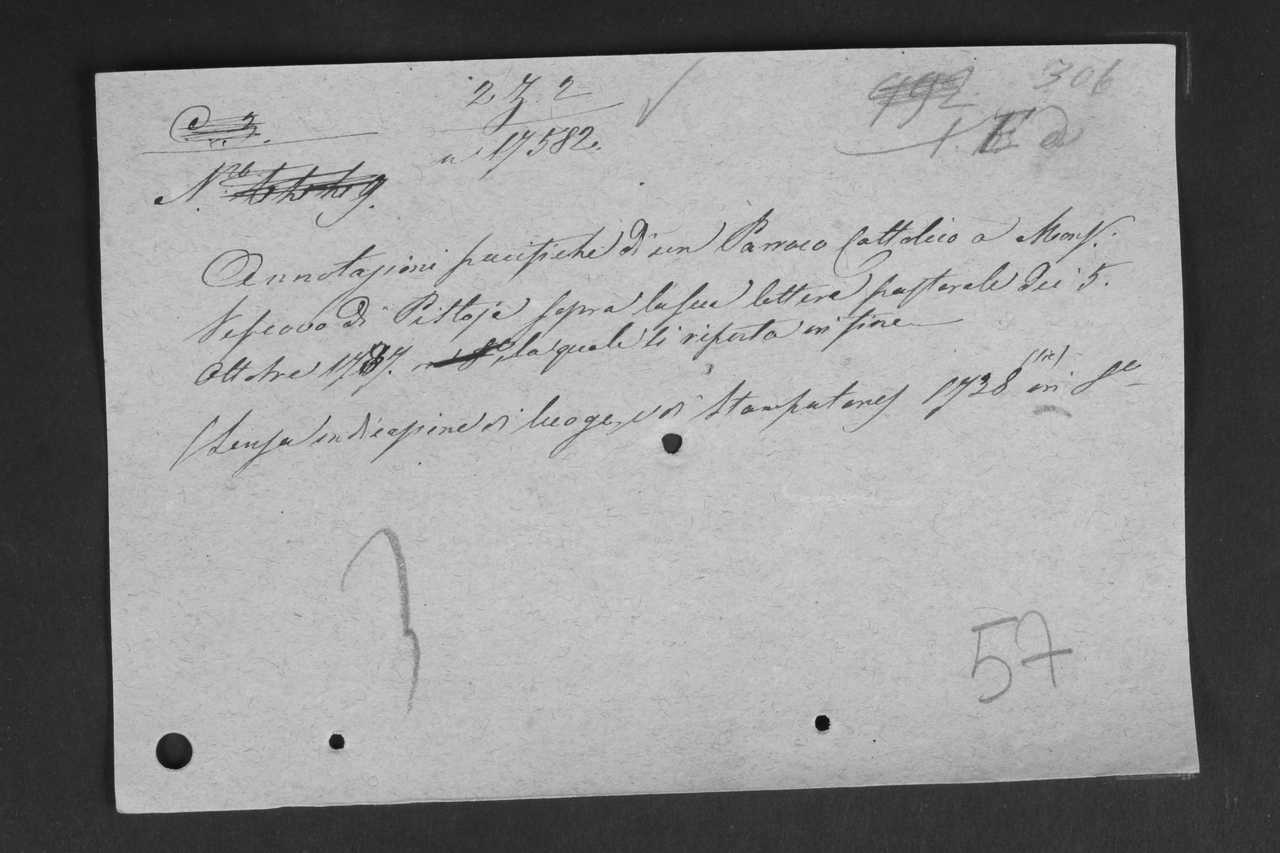 2 Z. 2
306
n 17582.
1. E a
N.ro
Annotazioni pacifiche di un Parroco Cattolico a Mons.r
Vescovo di Pistoja sopra la sua lettera pastorale dei 5.
Ottobre 1787. la quale si riporta in fine
(Senza indicazione di luogo, e di Stampatore) 1738 (sic) in 8o
57